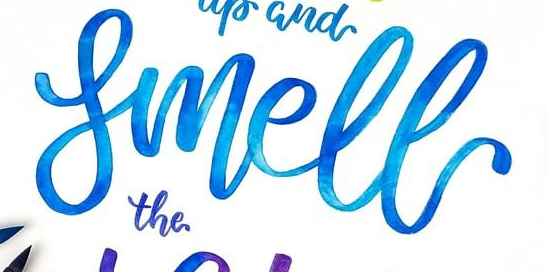 up and
Smell
the